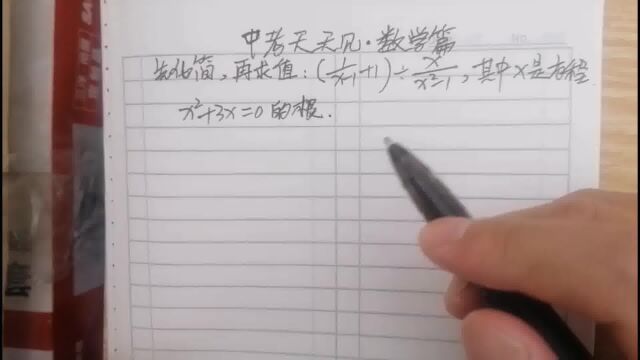 中考天天见·数学篇
先化简,再求值:(1/(x-1)+1)÷x/(x²-1),其中x是方程
x²+3x=0的根.